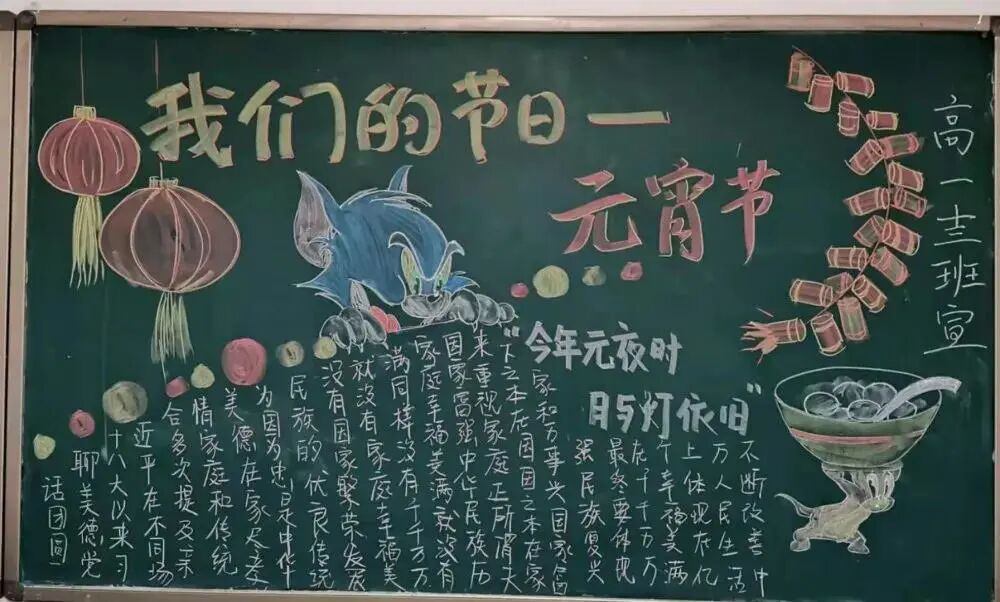 我们的节日一
元宵节
高一十三班宣
"今年元夜时
月与灯依旧"
话团圆
聊美德党
十八大以来习
近平在不同场
合多次提及亲
情家庭和传统
美德在家尽孝
为因为忠是中华
民族的优良传统
没有国家繁荣发展
就没有家庭幸福美
满同样没有千千万万
家庭幸福美满就没有
国家富强中华民族历
来重视家庭正所谓天
下之本在国国之本在家
家和万事兴国家富
强民族复兴
最终要体现
在千千万万
个幸福美满
上体现在亿
万人民生活
不断改善中